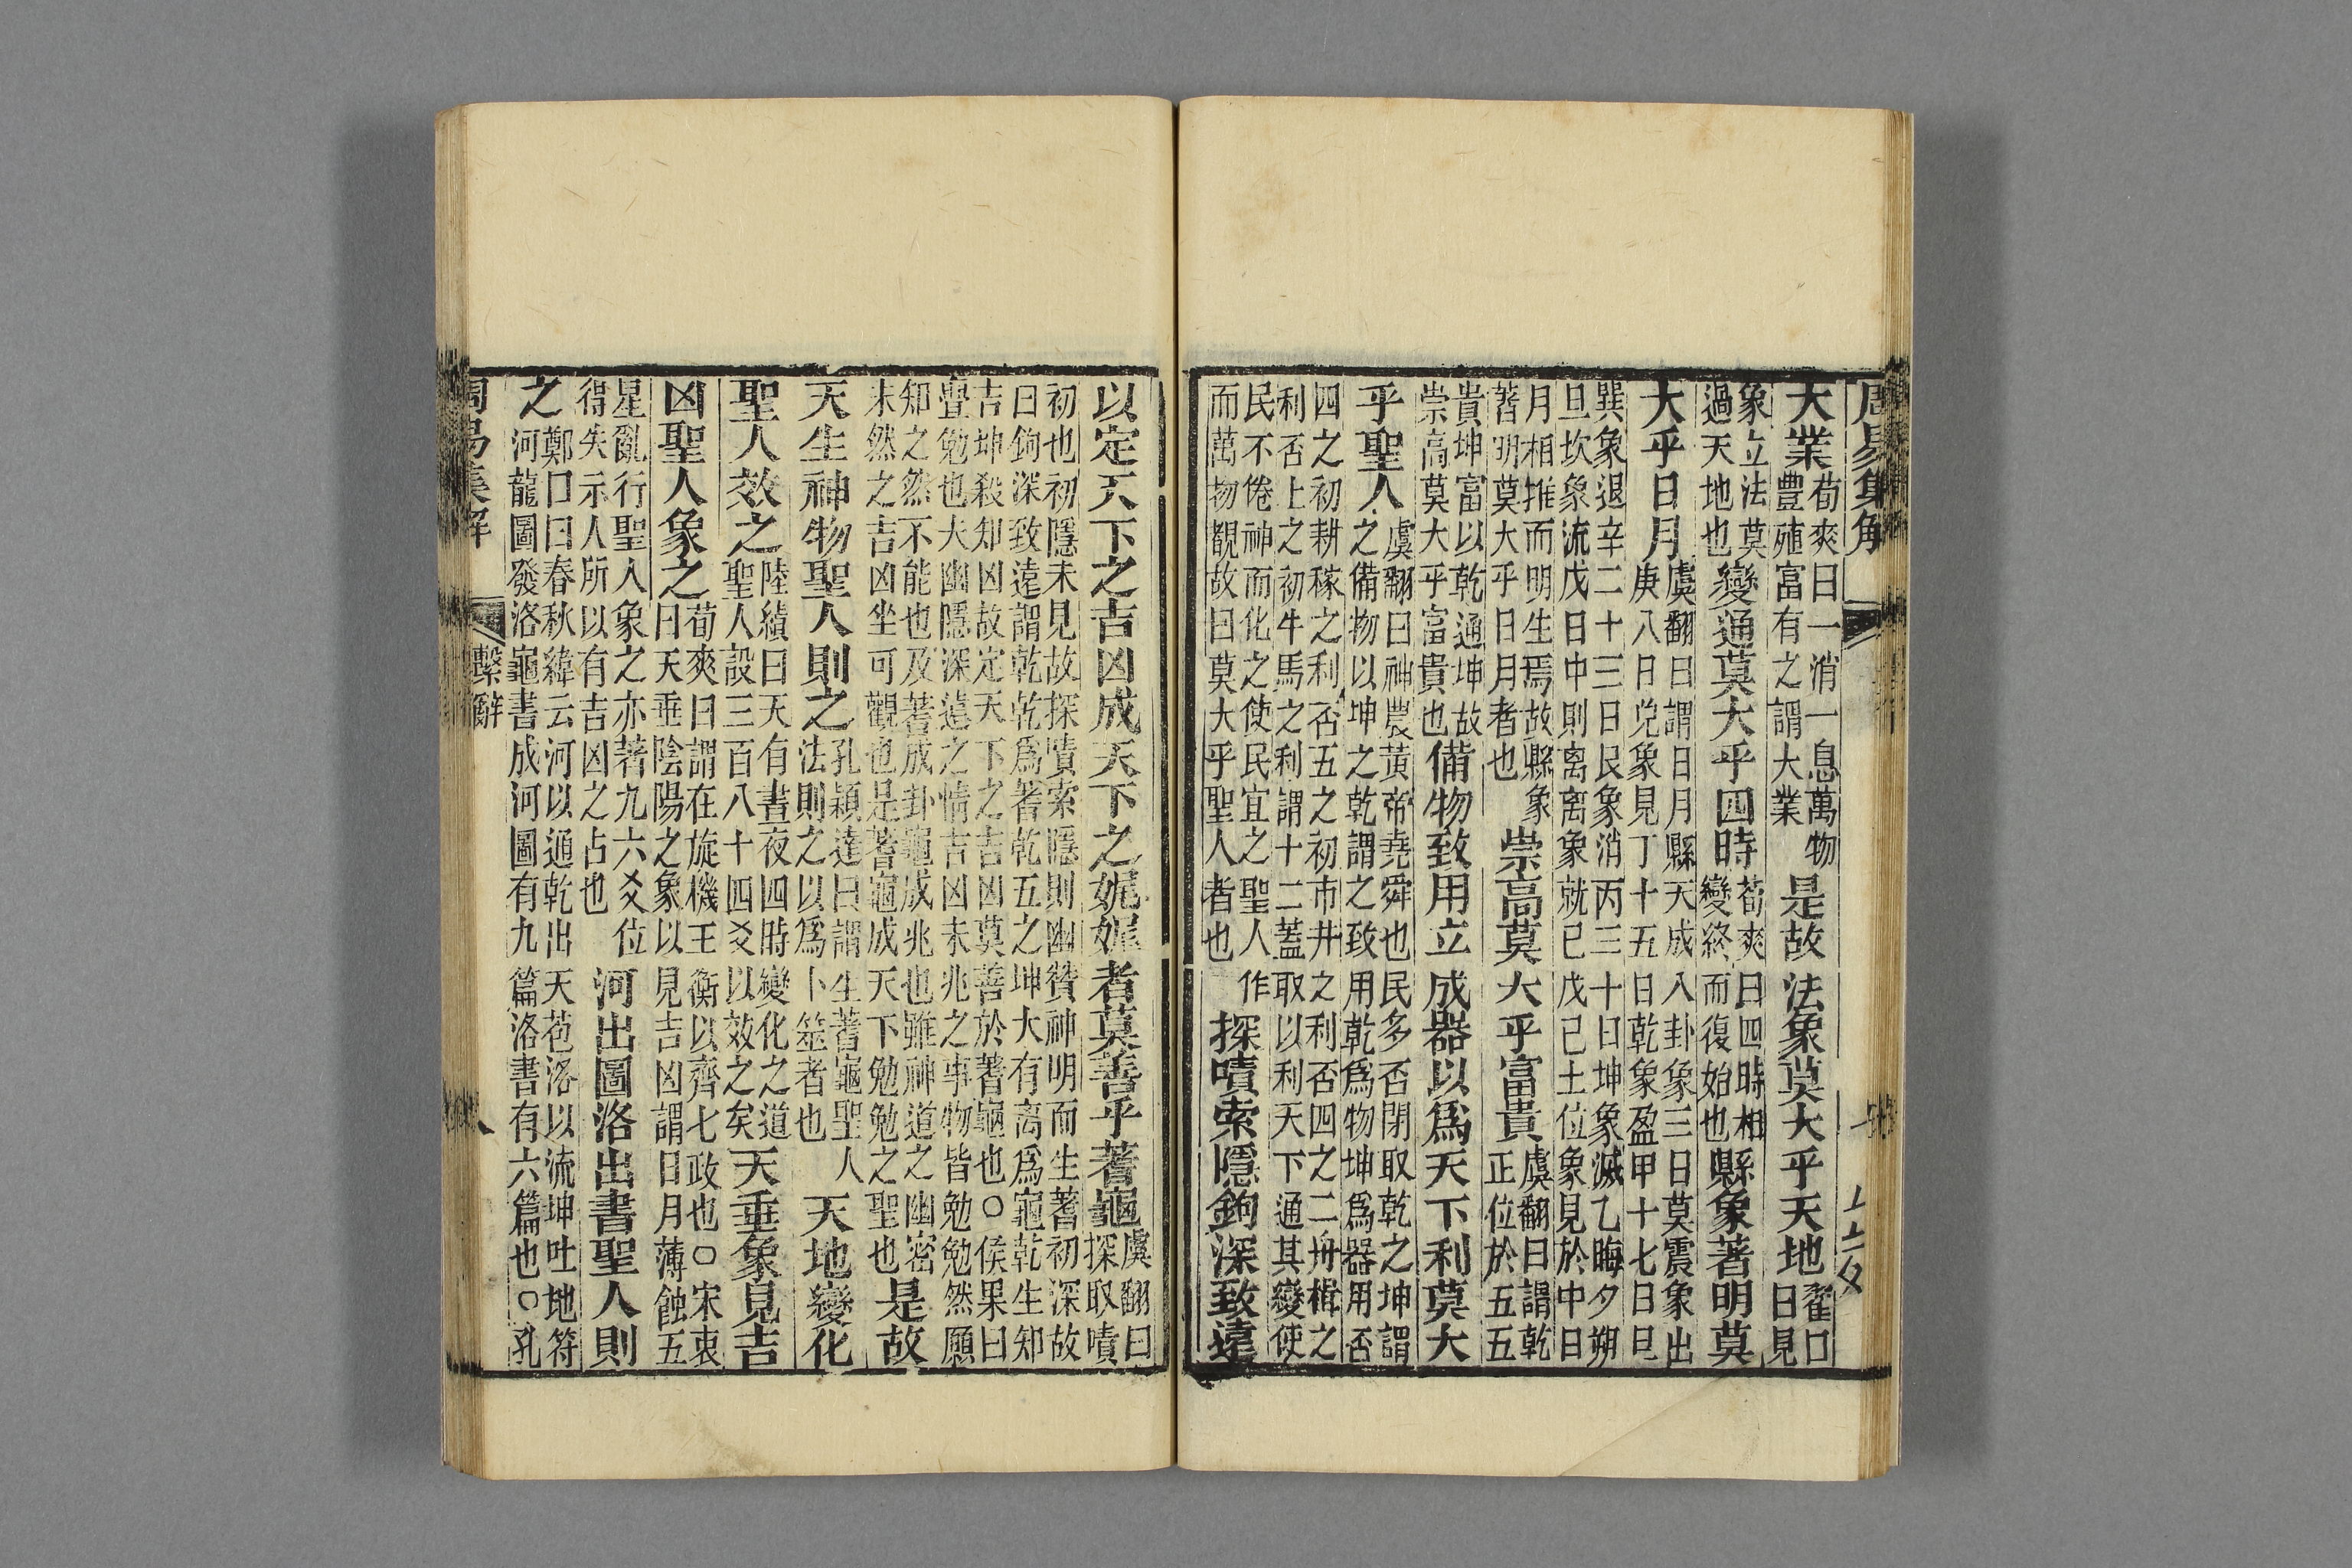 周易集解
大業荀爽曰一消一息萬物豐殖富有之謂大業是故法象莫大乎天地翟囗曰見
象立法莫過天地也變通莫大乎四時荀爽曰四時相變終而復始也縣象著明莫
大乎日月虞翻曰謂日月縣天成八卦象三日莫震象出庚八日兌象見丁十五日乾象盈甲十七日旦
巽象退辛二十三日艮象消丙三十日坤象滅乙晦夕朔旦坎象流戊日中則离离象就己戊己土位象見於中日
月相推而明生焉故縣象著明莫大乎日月者也崇高莫大乎富貴虞翻曰謂乾正位於五五
貴坤富以乾通坤故崇高莫大乎富貴也備物致用立成器以爲天下利莫大
乎聖人虞翻曰神農黃帝堯舜也民多否閉取乾之坤謂之備物以坤之乾謂之致用乾爲物坤爲器用否
四之初耕稼之利否五之初市井之利否四之二舟楫之利否上之初牛馬之利謂十二蓋取以利天下通其變使
民不倦神而化之使民宜之聖人作而萬物覩故曰莫大乎聖人者也探嘖索隱鉤深致遠
以定天下之吉凶成天下之娓娓者莫善乎蓍龜虞翻曰探取嘖
初也初隱未見故探嘖索隱則幽贊神明而生蓍初深故曰鉤深致遠謂乾乾爲蓍乾五之坤大有离爲龜乾生知
吉坤殺知凶故定天下之吉凶莫善於蓍龜也○侯果曰亹勉也夫幽隱深遠之情吉凶未兆之事物皆勉勉然願
知之然不能也及蓍成卦龜成兆也雖神道之幽密未然之吉凶坐可觀也是蓍龜成天下勉勉之聖也是故
天生神物聖人則之孔穎達曰謂生蓍龜聖人法則之以爲卜筮者也天地變化
聖人效之陸績曰天有晝夜四時變化之道聖人設三百八十四爻以效之矣天垂象見吉
凶聖人象之荀爽曰謂在旋機玉衡以齊七政也○宋衷曰天垂陰陽之象以見吉凶謂日月薄蝕五
星亂行聖人象之亦著九六爻位得失示人所以有吉凶之占也河出圖洛出書聖人則
之鄭囗曰春秋緯云河以通乾出天苞洛以流坤吐地符河龍圖發洛龜書成河圖有九篇洛書有六篇也○孔
周易集解 繫辭 八